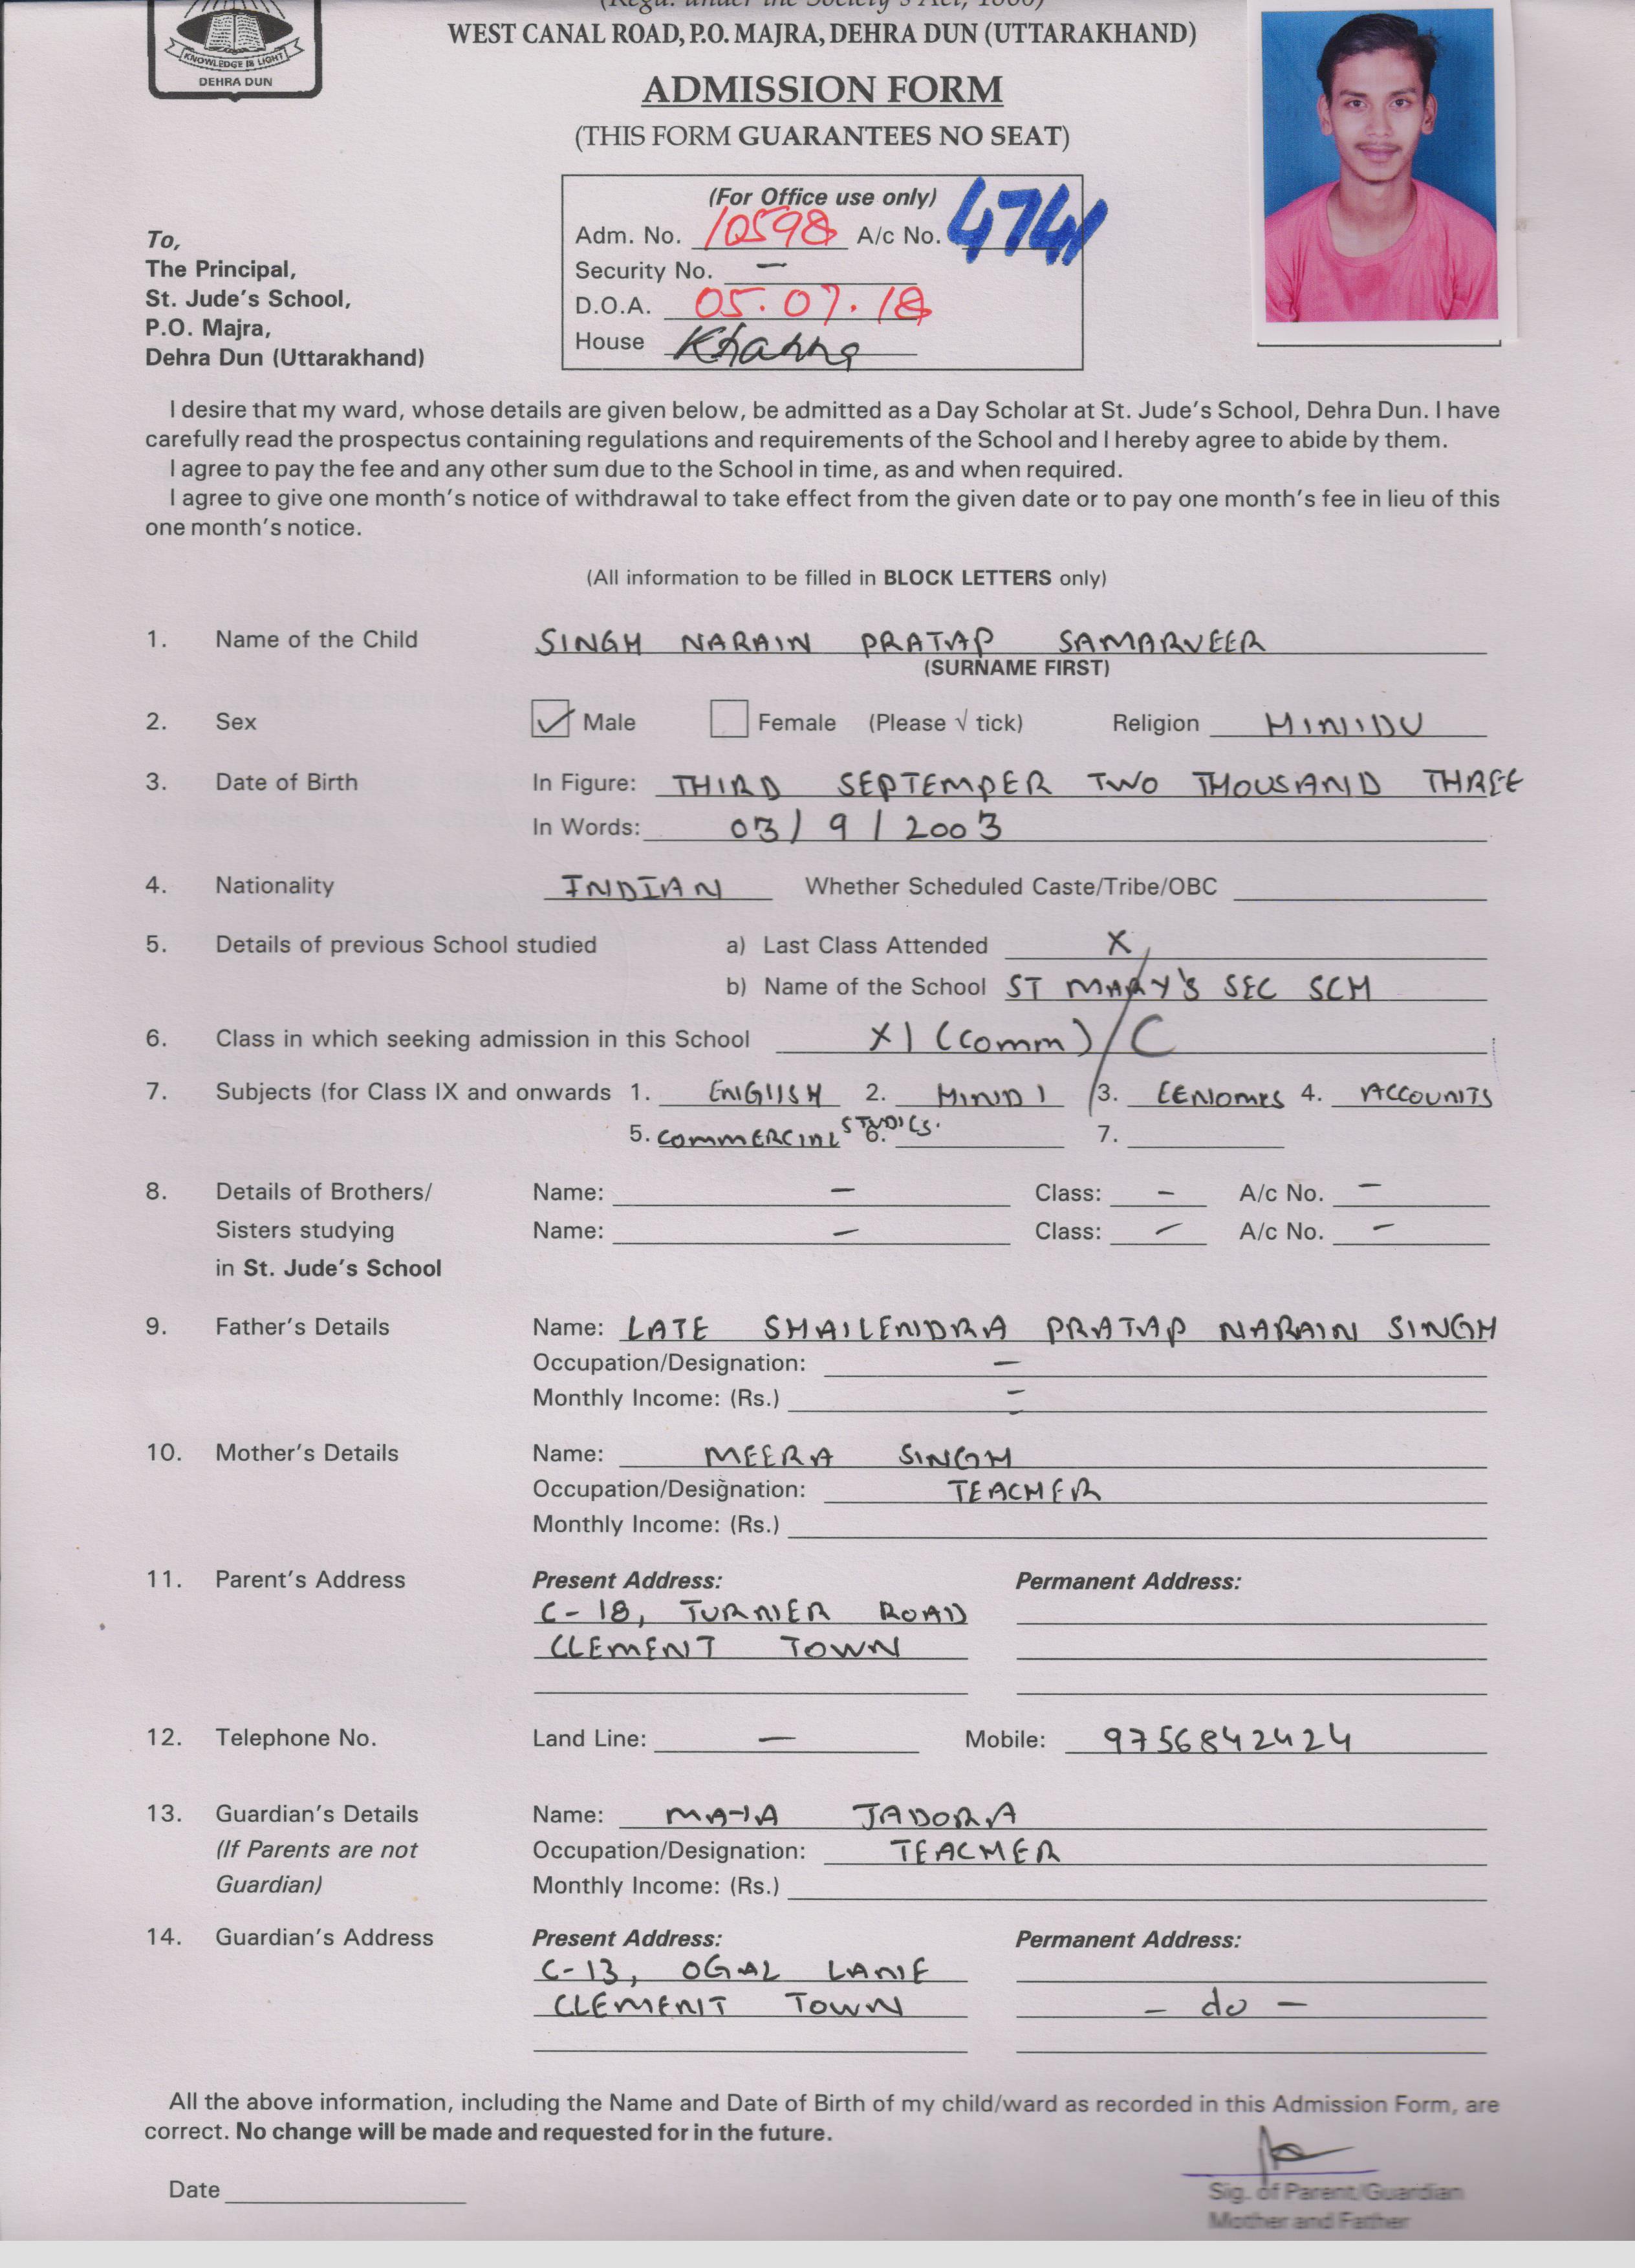 (Regd. under the Society's Act, 1860)
KNOWLEDGE IS LIGHT
DEHRA DUN
WEST CANAL ROAD, P.O. MAJRA, DEHRA DUN (UTTARAKHAND)
ADMISSION FORM
(THIS FORM GUARANTEES NO SEAT)
(For Office use only)
Adm. No. 10598 A/c No. 4741
Security No. –
D.O.A. 05.07.18
House
To,
The Principal,
St. Jude's School,
P.O. Majra,
Dehra Dun (Uttarakhand)
I desire that my ward, whose details are given below, be admitted as a Day Scholar at St. Jude's School, Dehra Dun. I have
carefully read the prospectus containing regulations and requirements of the School and I hereby agree to abide by them.
I agree to pay the fee and any other sum due to the School in time, as and when required.
I agree to give one month's notice of withdrawal to take effect from the given date or to pay one month's fee in lieu of this
one month's notice.
(All information to be filled in BLOCK LETTERS only)
1. Name of the Child SINGH NARAIN PRATAP SAMARVEER
(SURNAME FIRST)
2. Sex ✓ Male Female (Please √ tick) Religion HINDU
3. Date of Birth In Figure: THIRD SEPTEMPER TWO THOUSAND THREE
In Words: 03/9/2003
4. Nationality INDIAN Whether Scheduled Caste/Tribe/OBC
5. Details of previous School studied a) Last Class Attended X
b) Name of the School ST MARY'S SEC SCH
6. Class in which seeking admission in this School XI (Comm)/C
7. Subjects (for Class IX and onwards 1. ENGLISH 2. HINDI 3. 4. ACCOUNTS
5. COMMERCIAL STUDIES. 6. 7.
8. Details of Brothers/ Name: – Class: – A/c No. –
Sisters studying Name: – Class: – A/c No. –
in St. Jude's School
9. Father's Details Name: LATE SHAILENDRA PRATAP NARAIN SINGH
Occupation/Designation: –
Monthly Income: (Rs.) –
10. Mother's Details Name: MEERA SINGH
Occupation/Designation: TEACHER
Monthly Income: (Rs.)
11. Parent's Address Present Address: Permanent Address:
C-18, TURNER ROAD
CLEMENT TOWN
12. Telephone No. Land Line: – Mobile: 9756842424
13. Guardian's Details Name: JADORA
(If Parents are not Occupation/Designation: TEACHER
Guardian) Monthly Income: (Rs.)
14. Guardian's Address Present Address: Permanent Address:
C-13, OGAL LANE
CLEMENT TOWN – do –
All the above information, including the Name and Date of Birth of my child/ward as recorded in this Admission Form, are
correct. No change will be made and requested for in the future.
Date
Sig. of Parent/Guardian
Mother and Father